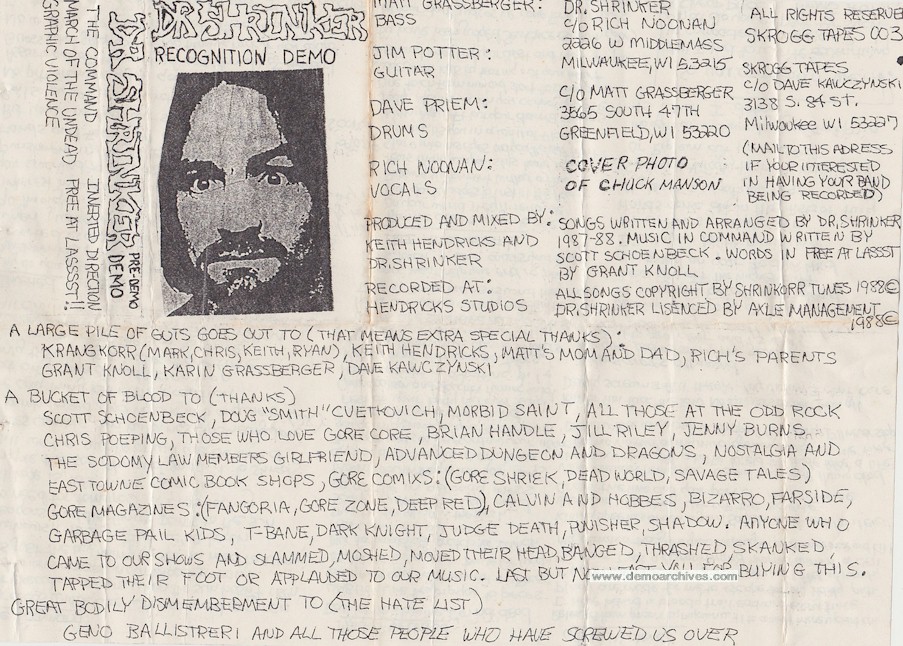 THE COMMAND INVERTED DIRECTION
MARCH OF THE UNDEAD FREE AT LASSST!!
GRAPHIC VIOLENCE
DR. SHRINKER PRE-DEMO DEMO
DR. SHRINKER
RECOGNITION DEMO
MATT GRASSBERGER:
BASS
JIM POTTER:
GUITAR
DAVE PRIEM:
DRUMS
RICH NOONAN:
VOCALS
PRODUCED AND MIXED BY:
KEITH HENDRICKS AND
DR. SHRINKER
RECORDED AT:
HENDRICKS STUDIOS
DR. SHRINKER
C/O RICH NOONAN
2226 W MIDDLEMASS
MILWAUKEE, WI 53215
C/O MATT GRASSBERGER
3565 SOUTH 47TH
GREENFIELD, WI 53220
COVER PHOTO
OF CHUCK MANSON
ALL RIGHTS RESERVE
SKROGG TAPES 003
SKROGG TAPES
C/O DAVE KAWCZYNSKI
3138 S. 84 ST.
MILWAUKEE WI 53227
(MAIL TO THIS ADRESS
IF YOUR INTERESTED
IN HAVING YOUR BAND
BEING RECORDED)
SONGS WRITTEN AND ARRANGED BY DR. SHRINKER
1987-88. MUSIC IN COMMAND WRITTEN BY
SCOTT SCHOENBECK. WORDS IN FREE AT LASSST
BY GRANT KNOLL
ALL SONGS COPYRIGHT BY SHRINKORR TUNES 1988©
DR. SHRINKER LISENCED BY AXLE MANAGEMENT
1988©
A LARGE PILE OF GUTS GOES OUT TO (THAT MEANS EXTRA SPECIAL THANKS):
KRANGKORR (MARK, CHRIS, KEITH, RYAN), KEITH HENDRICKS, MATT'S MOM AND DAD, RICH'S PARENTS
GRANT KNOLL, KARIN GRASSBERGER, DAVE KAWCZYNSKI
A BUCKET OF BLOOD TO (THANKS)
SCOTT SCHOENBECK, DOUG "SMITH" CVETKOVICH, MORBID SAINT, ALL THOSE AT THE ODD ROCK
CHRIS POEPING, THOSE WHO LOVE GORE CORE, BRIAN HANDLE, JILL RILEY, JENNY BURNS
THE SODOMY LAW MEMBERS GIRLFRIEND, ADVANCED DUNGEON AND DRAGONS, NOSTALGIA AND
EAST TOWNE COMIC BOOK SHOPS, GORE COMIXS: (GORE SHRIEK, DEAD WORLD, SAVAGE TALES)
GORE MAGAZINES: (FANGORIA, GORE ZONE, DEEP RED), CALVIN AND HOBBES, BIZARRO, FARSIDE,
GARBAGE PAIL KIDS, T-BANE, DARK KNIGHT, JUDGE DEATH, PUNISHER, SHADOW. ANYONE WHO
CAME TO OUR SHOWS AND SLAMMED, MOSHED, MOVED THEIR HEAD, BANGED, THRASHED, SKANKED,
TAPPED THEIR FOOT OR APPLAUDED TO OUR MUSIC. LAST BUT YOU FOR BUYING THIS.
www.demoarchives.com
GREAT BODILY DISMEMBERMENT TO (THE HATE LIST)
GENO BALLISTRERI AND ALL THOSE PEOPLE WHO HAVE SCREWED US OVER